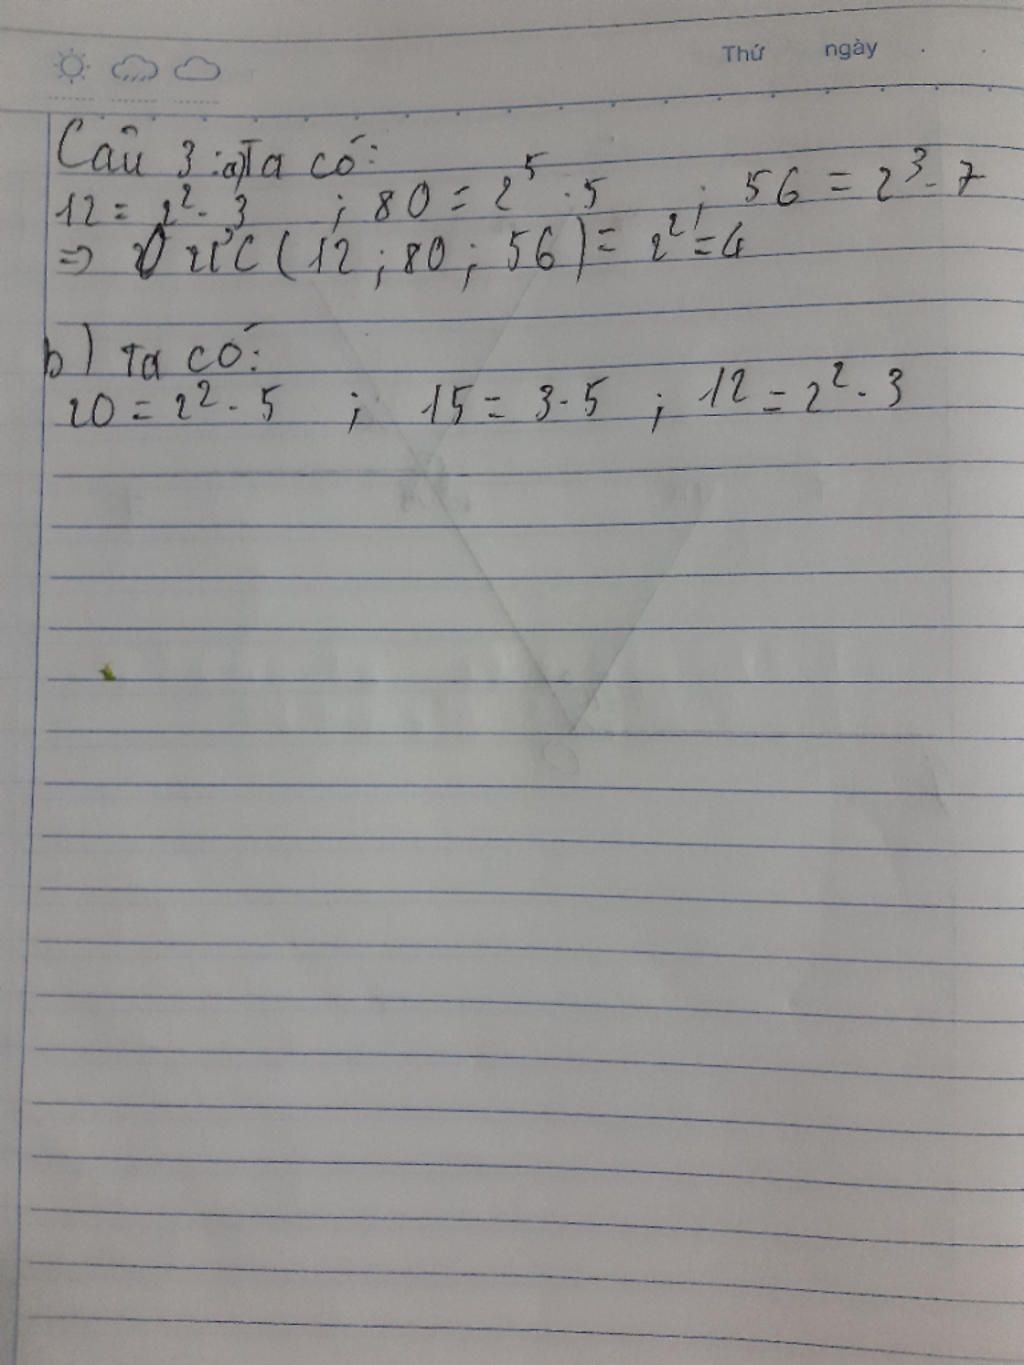 Thứ ngày
Câu 3: a) Ta có:
12 = 2². 3 ; 80 = 2⁵ . 5 ; 56 = 2³. 7
=> ƯCLN (12 ; 80 ; 56) = 2² = 4
b) Ta có:
20 = 2² . 5 ; 15 = 3 . 5 ; 12 = 2² . 3